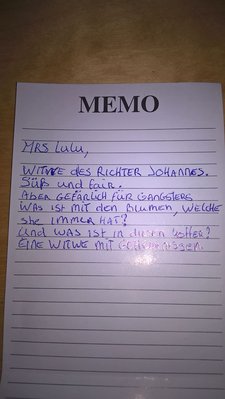 MEMO
MRS LULU,
WITWE DES RICHTER JOHANNES.
SÜß und fair.
ABER GEFÄRLICH FÜR GANGSTERS
WAS IST MIT DEN BLUMEN, WELCHE
she IMMER HAT?
Und WAS IST in diesen Koffer?
EINE WITWE MIT GEHEIMNISSEN.